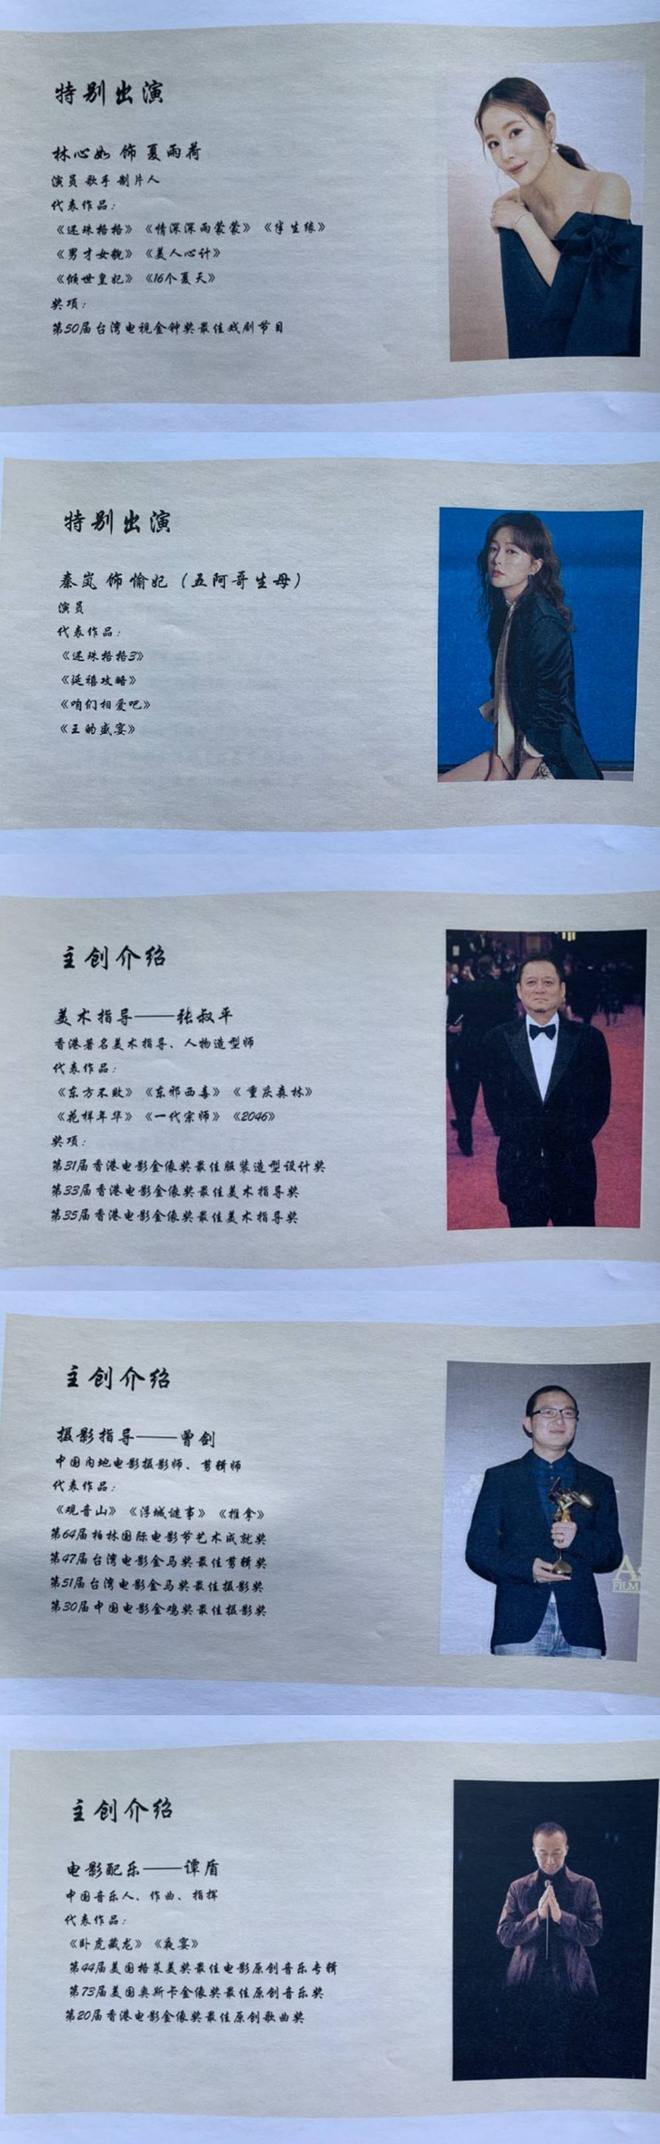 特别出演
林心如 饰 夏雨荷
演员 歌手 制片人
代表作品：
《还珠格格》《情深深雨蒙蒙》《半生缘》
《男才女貌》《美人心计》
《倾世皇妃》《16个夏天》
奖项：
第50届台湾电视金钟奖最佳戏剧节目
特别出演
秦岚 饰 愉妃（五阿哥生母）
演员
代表作品：
《还珠格格3》
《延禧攻略》
《咱们相爱吧》
《王的盛宴》
主创介绍
美术指导——张叔平
香港著名美术指导、人物造型师
代表作品：
《东方不败》《东邪西毒》《重庆森林》
《花样年华》《一代宗师》《2046》
奖项：
第31届香港电影金像奖最佳服装造型设计奖
第33届香港电影金像奖最佳美术指导奖
第35届香港电影金像奖最佳美术指导奖
主创介绍
摄影指导——曾剑
中国内地电影摄影师、剪辑师
代表作品：
《观音山》《浮城谜事》《推拿》
第64届柏林国际电影节艺术成就奖
第47届台湾电影金马奖最佳剪辑奖
第51届台湾电影金马奖最佳摄影奖
第30届中国电影金鸡奖最佳摄影奖
FILM
主创介绍
电影配乐——谭盾
中国音乐人、作曲、指挥
代表作品：
《卧虎藏龙》《夜宴》
第44届美国格莱美奖最佳电影原创音乐专辑
第73届美国奥斯卡金像奖最佳原创音乐奖
第20届香港电影金像奖最佳原创歌曲奖